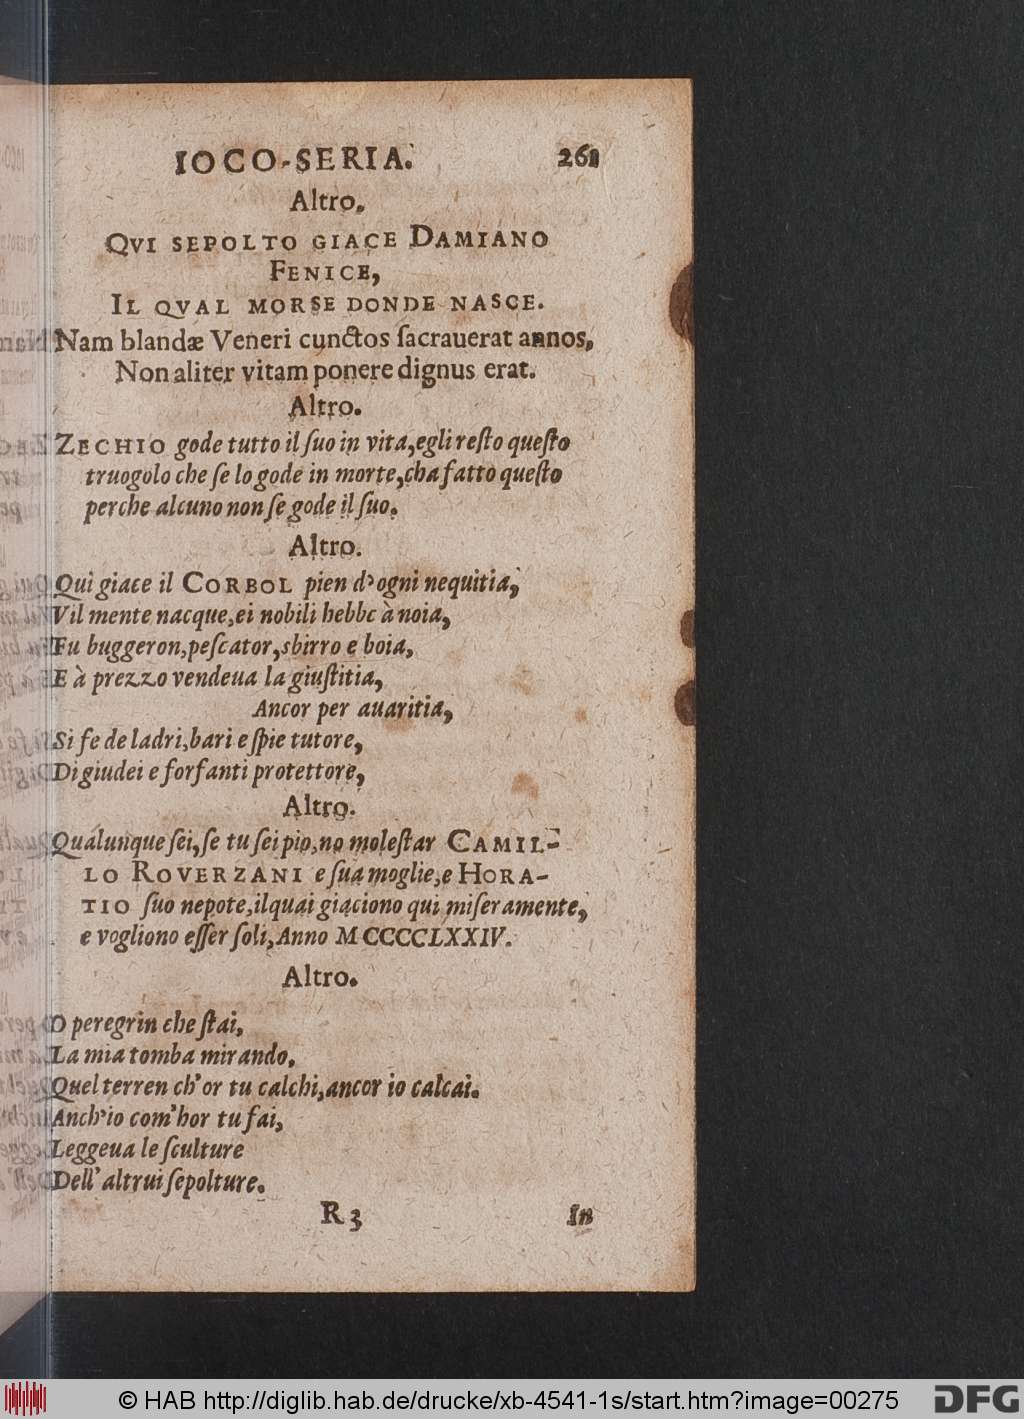 IOCO-SERIA. 261
Altro.
QVI SEPOLTO GIACE DAMIANO
FENICE,
IL QVAL MORSE DONDE NASCE.
Nam blandæ Veneri cunctos ſacrauerat annos,
Non aliter vitam ponere dignus erat.
Altro.
ZECHIO gode tutto il ſuo in vita, egli reſto queſto
truogolo che ſe lo gode in morte, cha fatto queſto
perche alcuno non ſe gode il ſuo.
Altro.
Qui giace il CORBOL pien d'ogni nequitia,
Vil mente nacque, ei nobili hebbe à noia,
Fu buggeron, peſcator, sbirro e boia,
E à prezzo vendeua la giuſtitia,
Ancor per auaritia,
Si fe de ladri, bari e ſpie tutore,
Di giudei e forfanti protettore,
Altro.
Qualunque ſei, ſe tu ſei pio, no moleſtar CAMIL-
LO ROVERZANI e ſua moglie, e HORA-
TIO ſuo nepote, ilquai giaciono qui miſeramente,
e vogliono eſſer ſoli, Anno MCCCCCLXXIV.
Altro.
O peregrin che ſtai,
La mia tomba mirando,
Quel terren ch'or tu calchi, ancor io calcai.
Anch'io com'hor tu fai,
Leggeua le ſculture
Dell'altrui ſepolture.
R 3 In
© HAB http://diglib.hab.de/drucke/xb-4541-1s/start.htm?image=00275
DFG